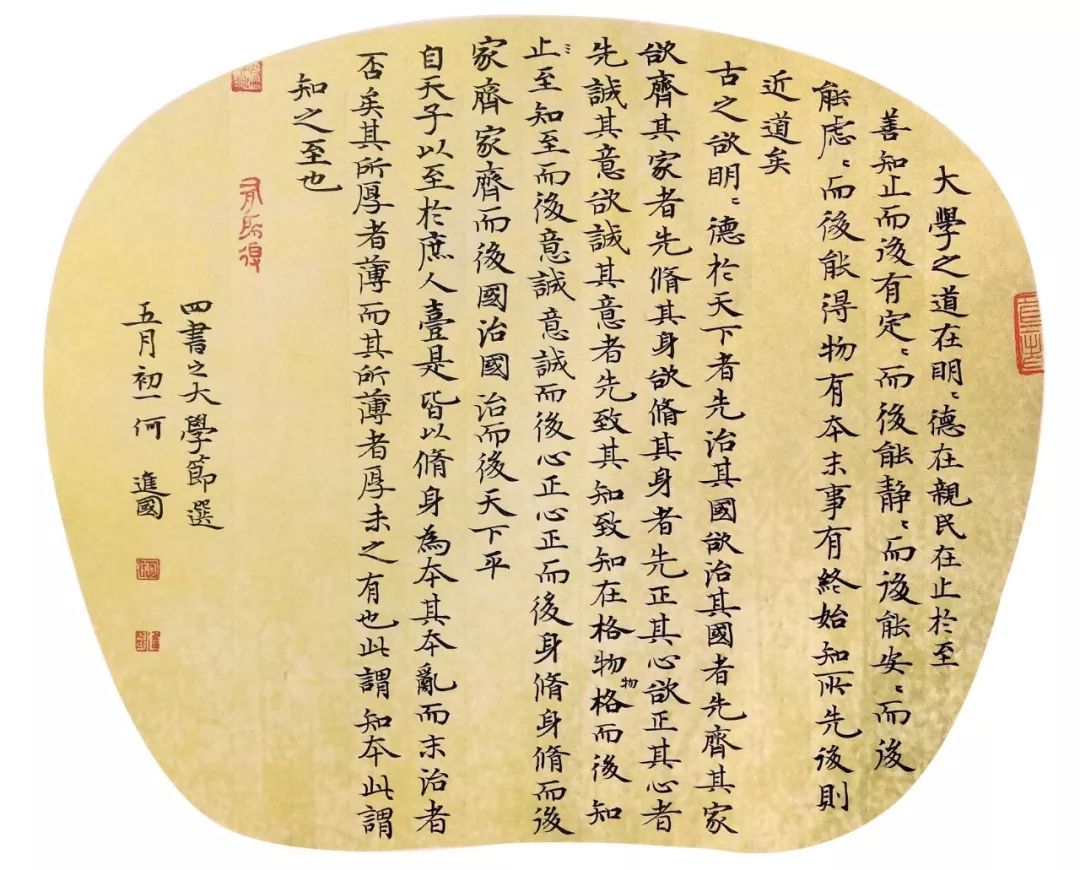 大學之道在明〻德在親民在止於至
善知止而後有定〻而後能静〻而後能安〻而後
能虑〻而後能得物有本末事有終始知所先後則
近道矣
古之欲明〻德於天下者先治其國欲治其國者先齊其家
欲齊其家者先脩其身欲脩其身者先正其心欲正其心者
先誠其意欲誠其意者先致其知致知在格物物格而後知
止至知至而後意誠意誠而後心正心正而後身脩身脩而後
家齊家齊而後國治國治而後天下平
自天子以至於庶人壹是皆以脩身為本其本亂而末治者
否矣其所厚者薄而其所薄者厚未之有也此謂知本此謂
知之至也
四書之大學節選
五月初一何 進國